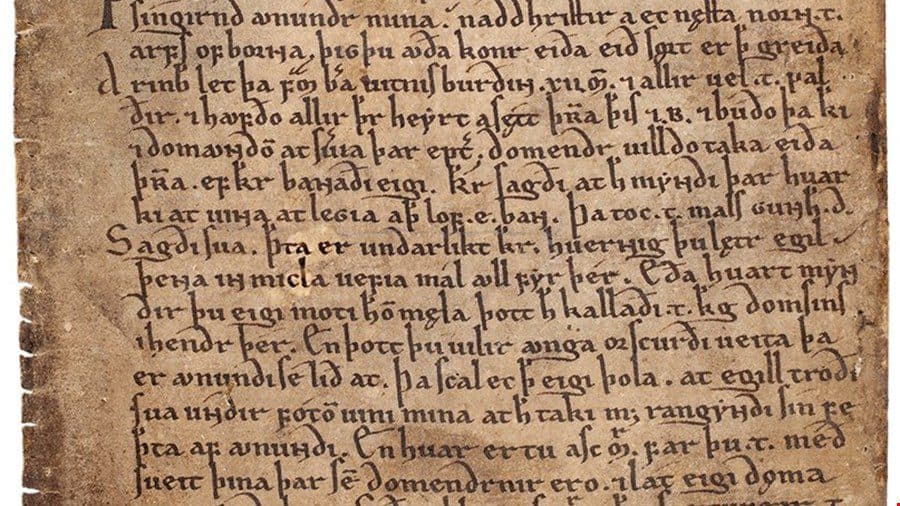 þsingirnd aunundr nuna. naddhristir a ec nęsta. norn. t.
arfs of borna, þigþu auða konr eiða eið sǫrt er þ greiða
drinb let þa fō͛m ba uitnis burðin. xii m̄. ⁊ allir uel. t. fal
ðir. ⁊ hauf̄ðo allir þr heyrt asętt þra þis ⁊.b. ⁊ budo þa ki
⁊ domaundō at suia þar ept͛. domendr uilldo taka eiða
þra. ef kr bannaði eigi. kr sagði. at h myndi þar huar
ki at uinna. at legia aþ lof. e. ban. Þa toc. t. mals gunh. d.
Sagði sua. þta er undarlikt kr. huernig þu lętr egil.
þena in micla uefia mal aull fyr þer. Eða huart myn
dir þu eigi moti hō męla þott h kallaði. t. kg domsins
⁊ hendr þer. En þott þu uilir aunga orscurði ueita þa
er aunundi se lið at. Þa scal ec þ eigi þola. at egill troði
sua undir fotō uini mina at h taki m; rangyndi sin fe
þta af aunundi. En huar er tu ascm͛. far þu. t. með
sueit þina þar sē domendrnir ero. ⁊ lat eigi doma